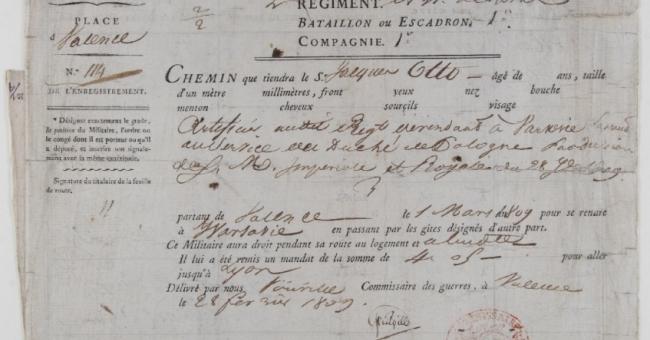 PLACE
d Valence
N.° 114
DE L'ENREGISTREMENT.
* Désigner exactement le grade,
la position du Militaire, l'ordre ou
le congé dont il est porteur ou qu'il
a déposé, et inscrire son signale-
ment avec la même exactitude.
Signature du titulaire de la feuille
de route.
2/2
REGIMENT.
BATAILLON OU ESCADRON, 1er
COMPAGNIE. 1re
CHEMIN que tiendra le S. Jacques Otto âgé de ans, taille
d'un mètre millimètres, front yeux nez bouche
menton cheveux sourcils visage
Artificier audit Regt se rendant à Varsovie
au service du Duché de Pologne
de S. M. Imperiale et Royale du 28
partant de Valence le 1 Mars 1809 pour se rendre
à Warsovie en passant par les gîtes désignés d'autre part.
Ce Militaire aura droit pendant sa route au logement et
Il lui a été remis un mandat de la somme de 4 05 pour aller
jusqu'à Lyon
Délivré par nous Commissaire des guerres, à Valence
le 28 février 1809.